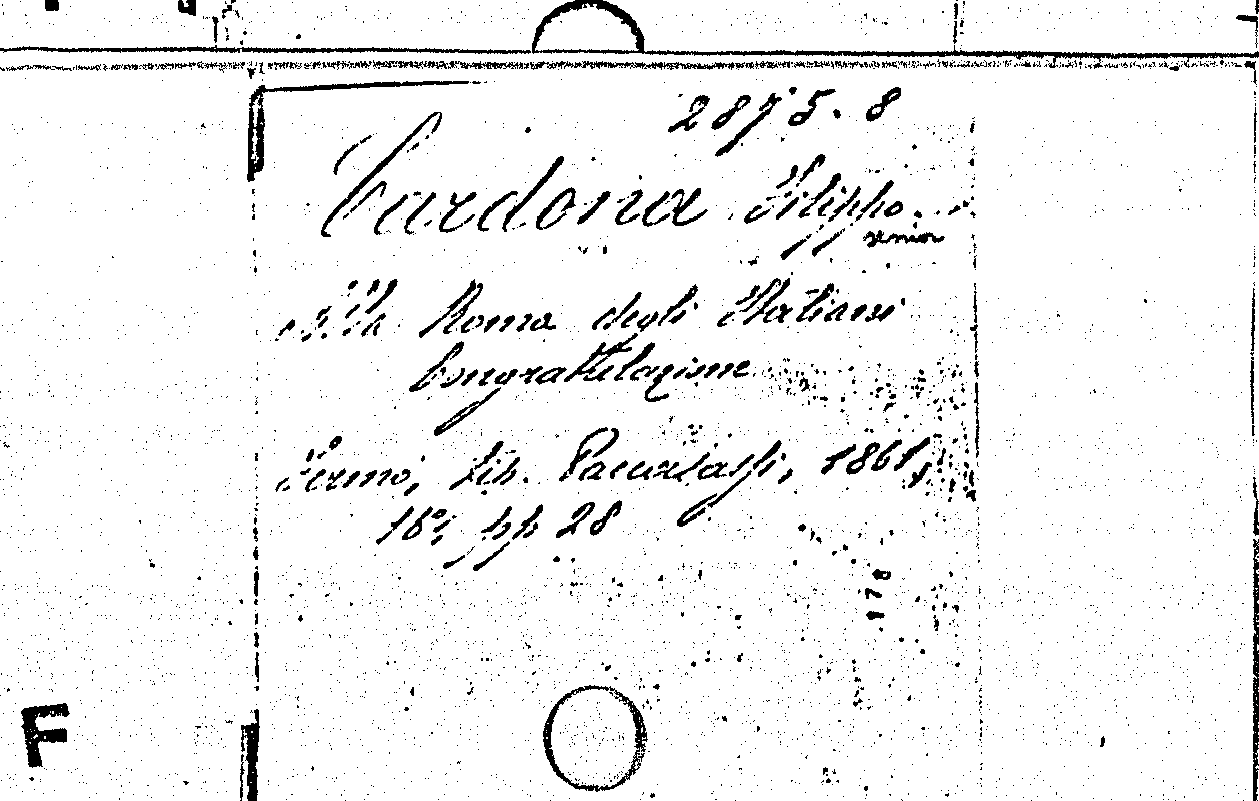 2875.8
Cardona Filippo
senior
Alla Roma degli Italiani
Congratulazione
Fermo, tip. Paccasassi, 1861,
16°, pp 28
178
F